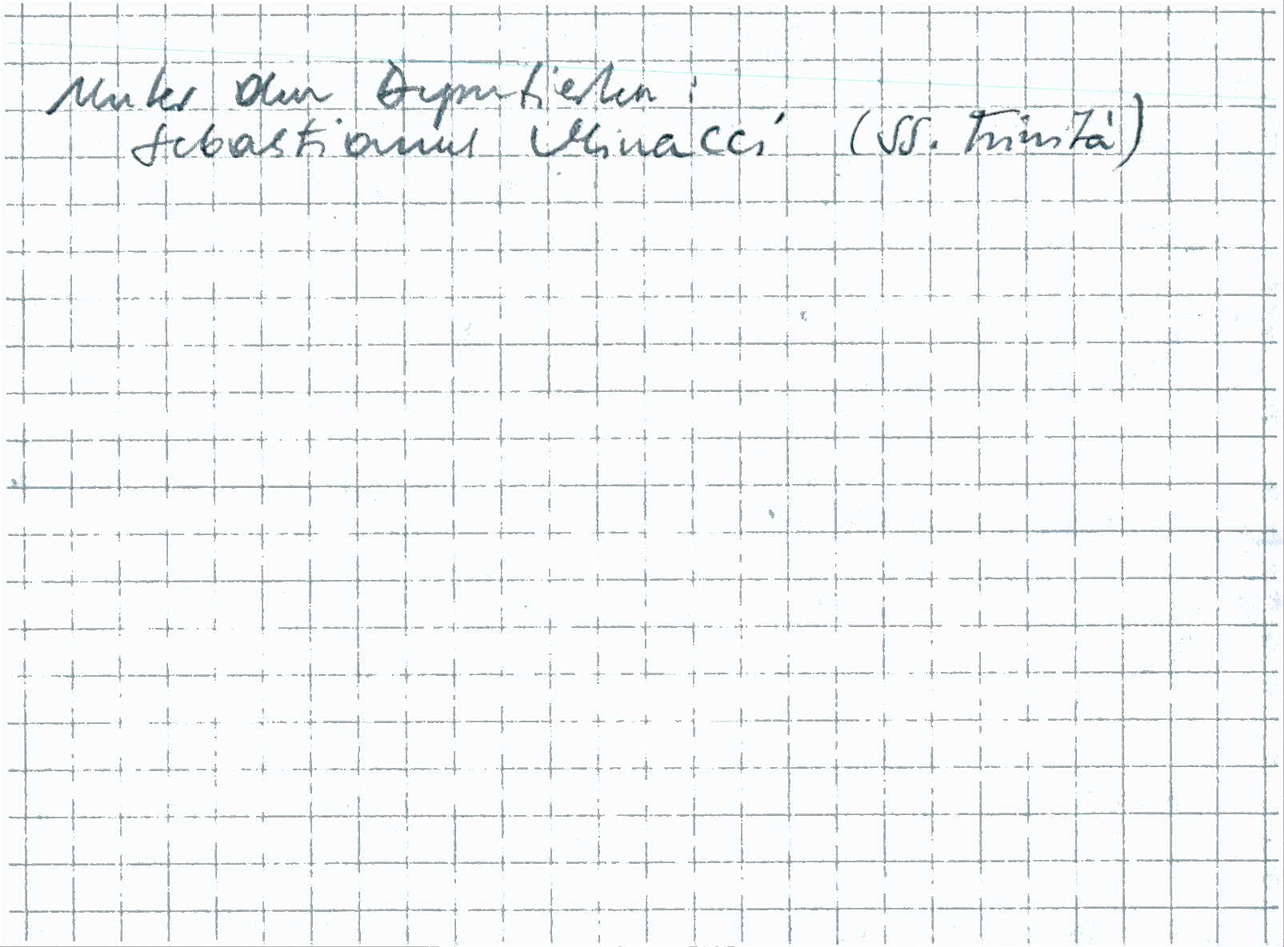 Unter den Deputierten:
Sebastianus Vlinacci (SS. Trinità)